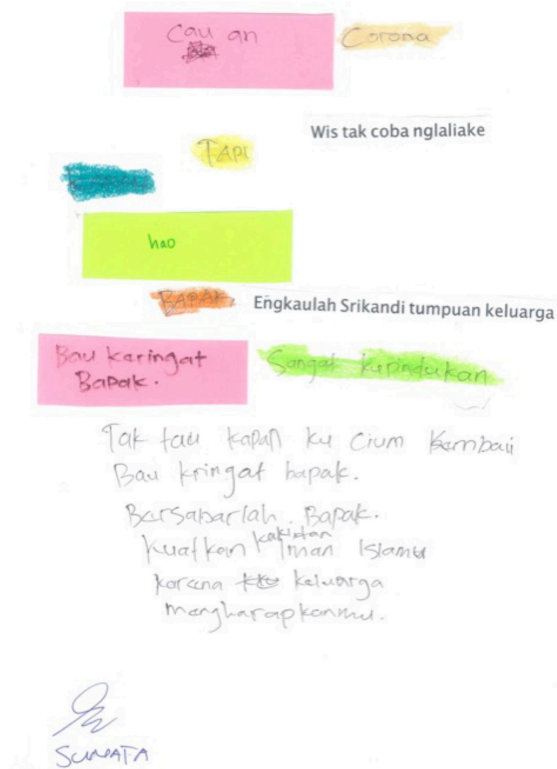 Cau an Corona
Wis tak coba nglaliake
TAPI
hao
BAPAK. Engkaulah Srikandi tumpuan keluarga
Bau karingat
Bapak.
Sangat kurindukan
Tak tau kapan ku cium kembali
Bau kringat bapak.
Bersabarlah. Bapak.
kuatkan iman Islamu
karena keluarga
mengharapkanmu.